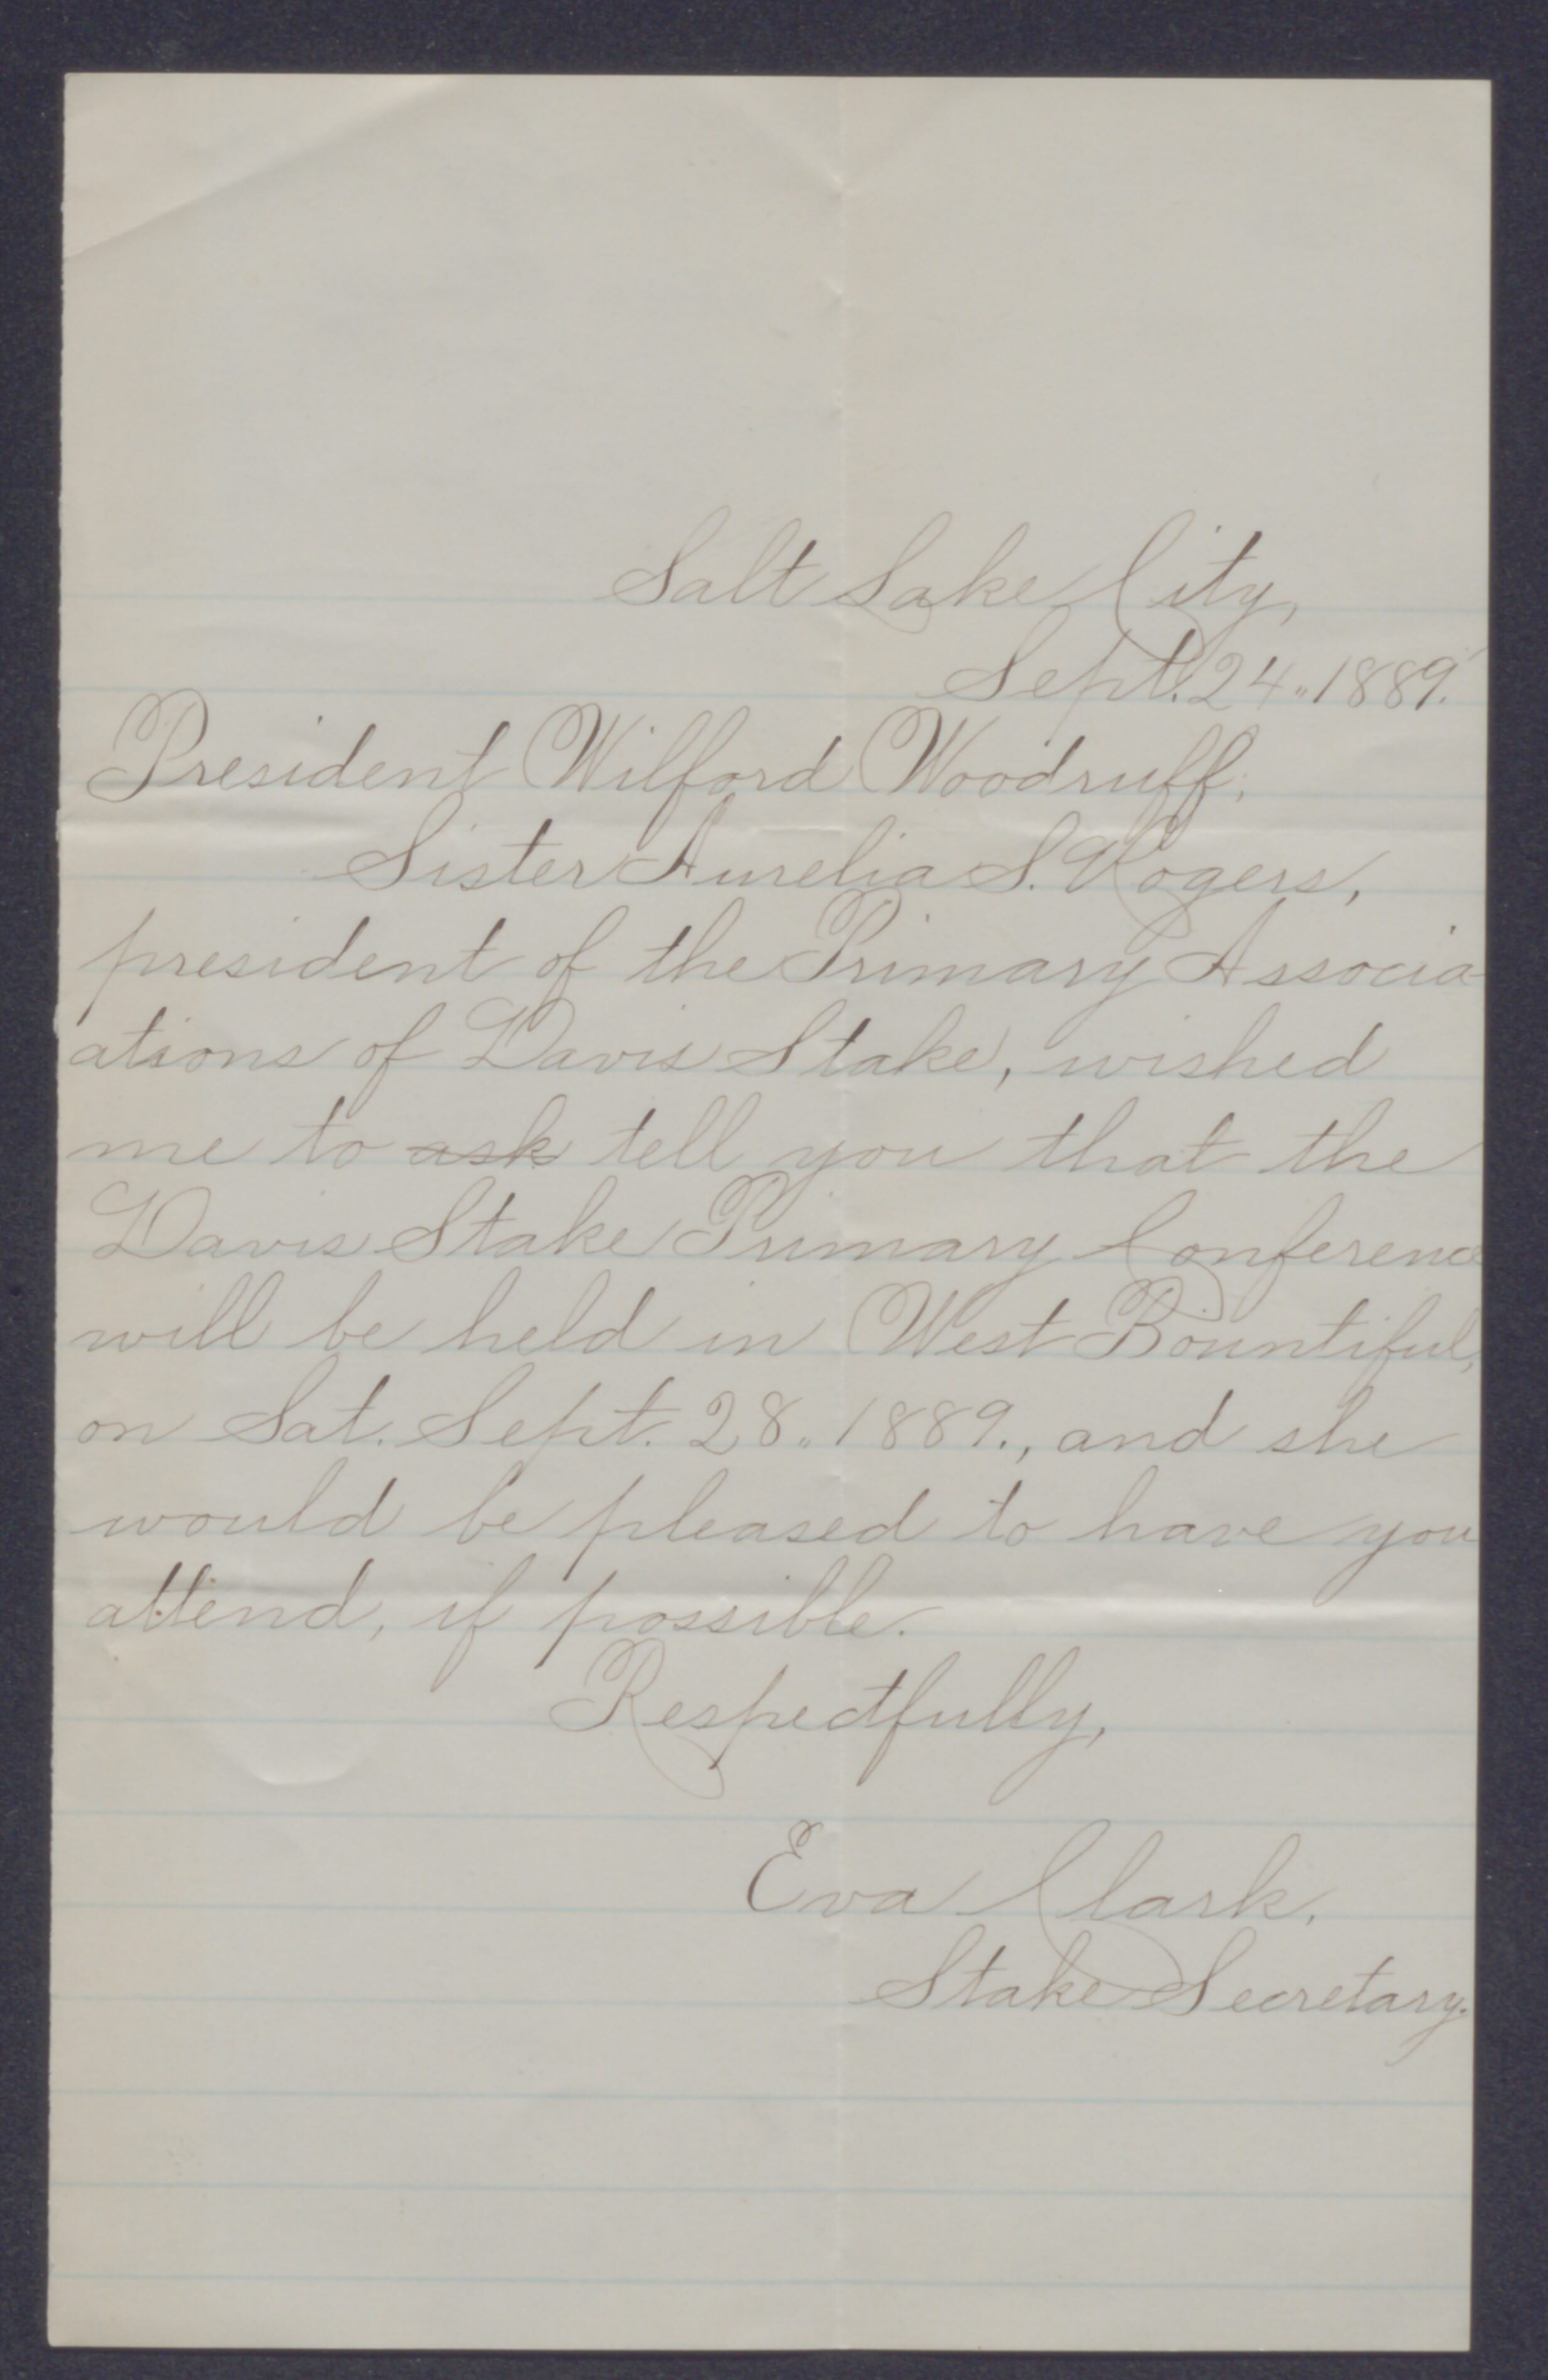 Salt Lake City,
Sept. 24" 1889.
President Wilford Woodruff;
Sister Aurelia S. Rogers,
president of the Primary Associa-
ations of Davis Stake, wished
me to ask tell you that the
Davis Stake Primary Conference
will be held in West Bountiful,
on Sat. Sept. 28" 1889., and she
would be pleased to have you
attend, if possible.
Respectfully,
Eva Clark.
Stake Secretary.